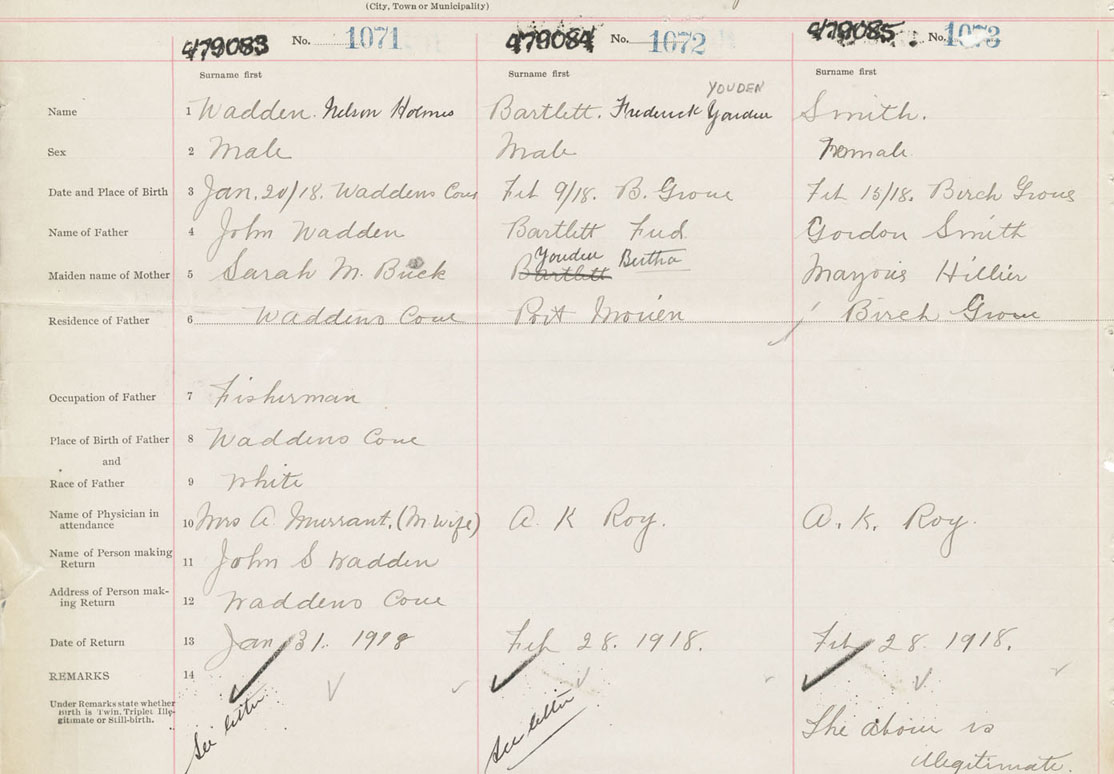 (City, Town or Municipality)
479083 No. 1071 479084 No. 1072 479085 No. 1073
1 Surname first Surname first Surname first
YOUDEN
Name 1 Wadden. Nelson Holmes Bartlett. Frederick Youden Smith.
Sex 2 Male Male Female.
Date and Place of Birth 3 Jan. 20/18. Waddens Cove Feb 9/18. B. Grove Feb 15/18. Birch Grove
Name of Father 4 John Wadden Bartlett Fred Gordon Smith
Youden Bertha
Maiden name of Mother 5 Sarah M. Buck Bartlett Marjorie Hillier
Residence of Father 6 Waddens Cove Port Morien Birch Grove
Occupation of Father 7 Fisherman
Place of Birth of Father 8 Waddens Cove
and
Race of Father 9 White
Name of Physician in
attendance 10 Mrs A. Murrant. (M. wife) A. K Roy. A. K. Roy.
Name of Person making
Return 11 John S Wadden
Address of Person mak-
ing Return 12 Waddens Cove
Date of Return 13 Jan 31. 1918 Feb 28. 1918. Feb 28. 1918.
REMARKS 14
Under Remarks state whether
birth is Twin, Triplet, Ille-
gitimate or Still-birth.
See letter See letter The above is
illegitimate.